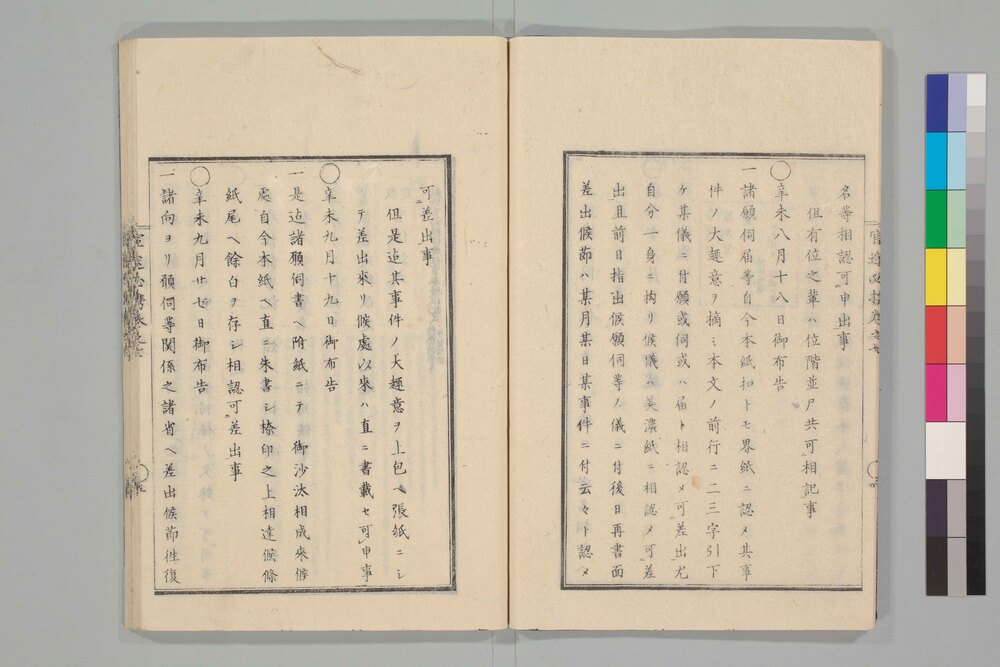 名等相認可申出事
但有位之輩ハ位階並尸共可相記事
◯辛未八月十八日御布告
一諸願伺届等自今本紙扣トモ界紙ニ認メ其事
件ノ大趣意ヲ摘ミ本文ノ前行ニ二三字引下
ケ某儀ニ付願或伺或ハ届ト相認メ可差出尤
自分一身ニ拘リ候儀ハ美濃紙ニ相認メ可差
出且前日指出候願伺等ノ儀ニ付後日再書面
差出候節ハ某月某日某事件ニ付云々ト認メ
可差出事
但是迠其事件ノ大趣意ヲ上包ヘ張紙ニシ
テ差出來リ候處以來ハ直ニ書載セ可申事
◯辛未九月十九日御布告
一是迠諸願伺書ヘ附紙ニテ御沙汰相成來候
處自今本紙ヘ直ニ朱書シ捺印之上相達候條
紙尾ヘ餘白ヲ存シ相認可差出事
◯辛未九月廿七日御布告
一諸向ヨリ願伺等関係之諸省ヘ差出候節徃復